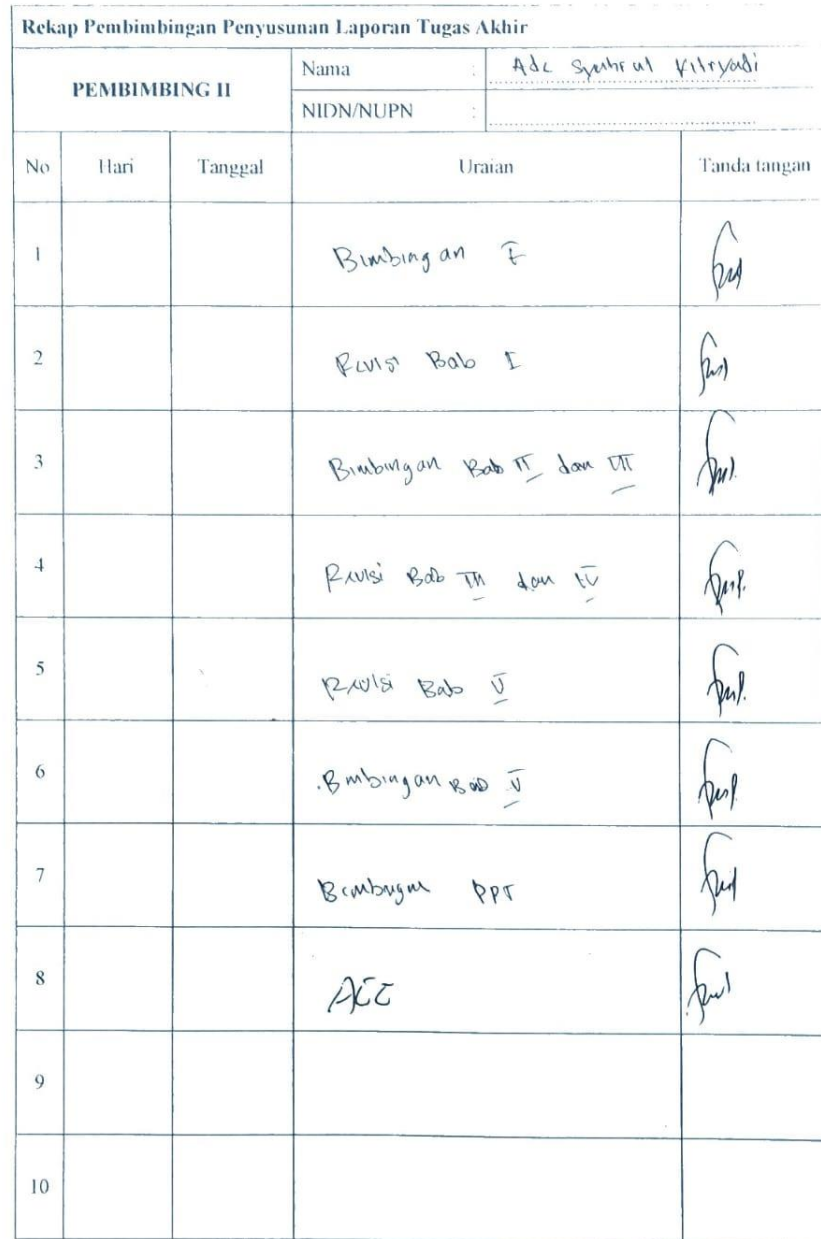 Rekap Pembimbingan Penyusunan Laporan Tugas Akhir
PEMBIMBING II
Nama :
NIDN/NUPN :
No Hari Tanggal Uraian Tanda tangan
1 Bimbingan I
2 Revisi Bab I
3 Bimbingan Bab II dan III
4 Revisi Bab III dan IV
5 Revisi Bab V
6 Bimbingan Bab V
7 Bimbingan PPT
8 ACC
9
10